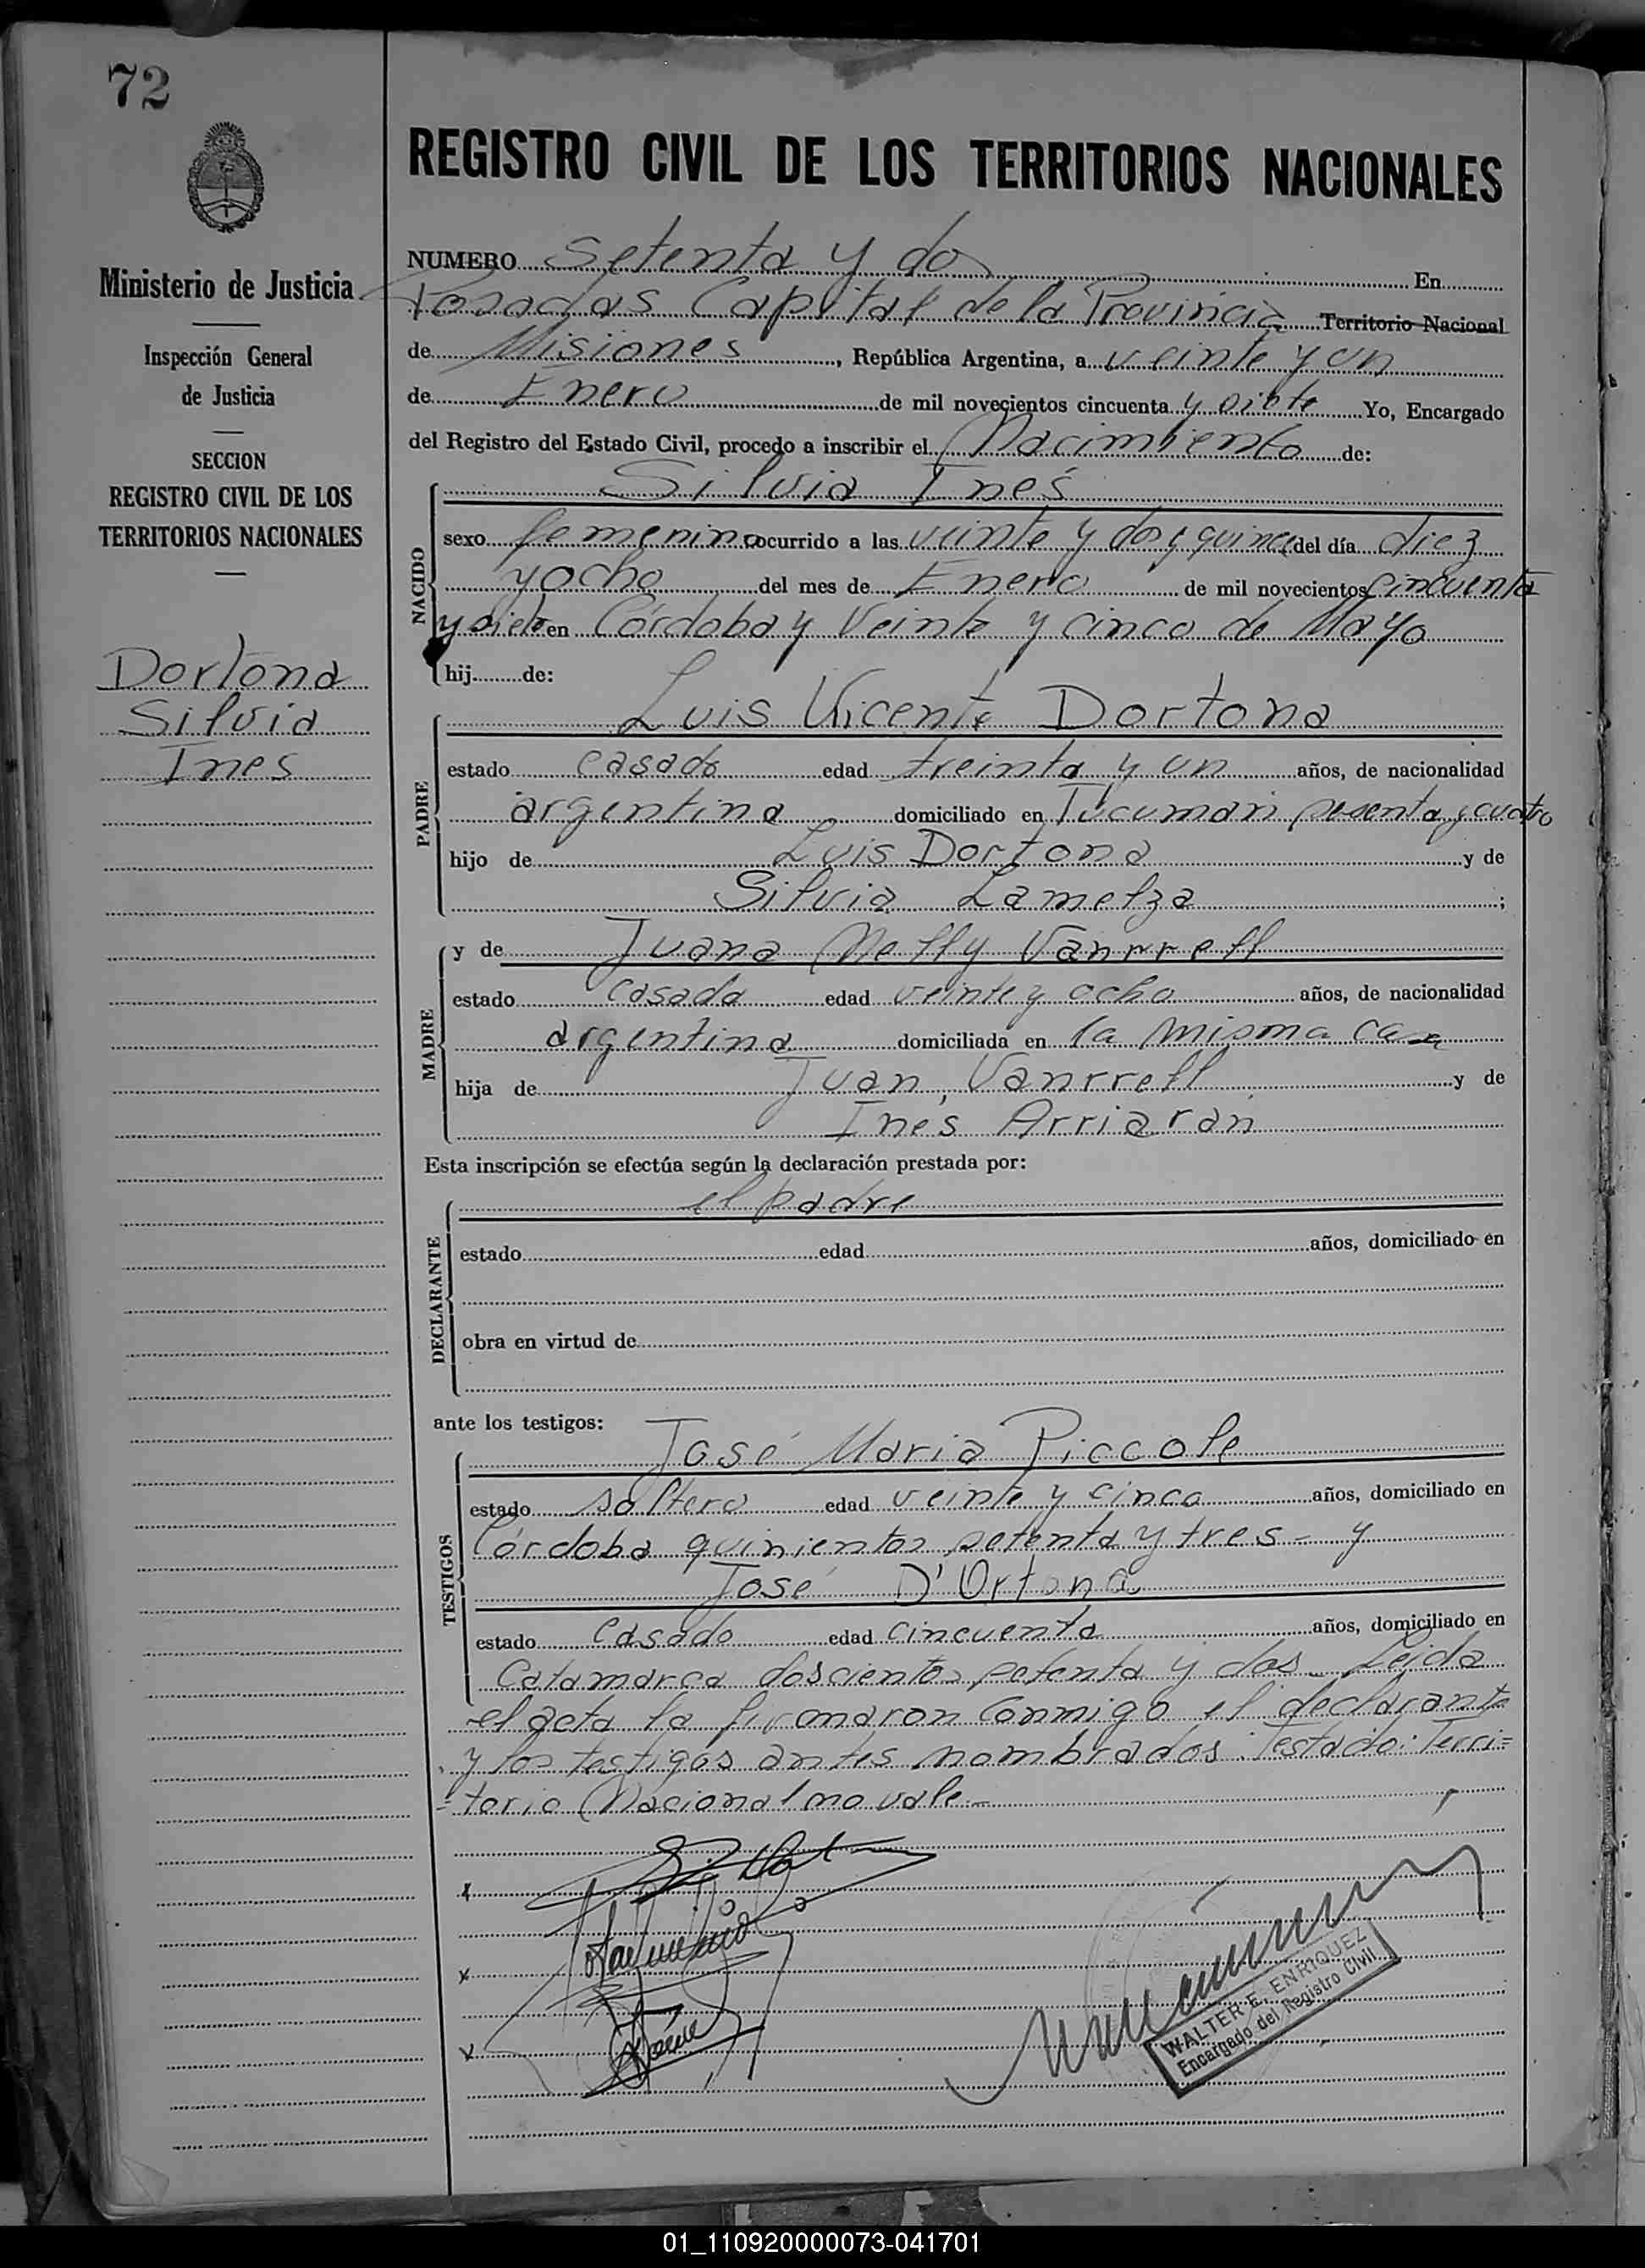 72
Ministerio de Justicia
Inspección General
de Justicia
SECCION
REGISTRO CIVIL DE LOS
TERRITORIOS NACIONALES
Dortona
Silvia
Ines
REGISTRO CIVIL DE LOS TERRITORIOS NACIONALES
NUMERO Setenta y dos En
Posadas Capital de la Provincia Territorio Nacional
de Misiones, República Argentina, a veinte y un
de Enero de mil novecientos cincuenta y siete Yo, Encargado
del Registro del Estado Civil, procedo a inscribir el Nacimiento de:
NACIDO
Silvia Inés
sexo femenino ocurrido a las veinte y dos y quince del día diez
y ocho del mes de Enero de mil novecientos cincuenta
y siete en Córdoba y Veinte y cinco de Mayo
hij de:
PADRE
Luis Vicente Dortona
estado casado edad treinta y un años, de nacionalidad
argentina domiciliado en Tucumán sesenta y cuatro
hijo de Luis Dortona y de
Silvia Lamelza;
MADRE
y de Juana Nelly Vanrrell
estado casada edad veinte y ocho años, de nacionalidad
argentina domiciliada en la misma casa
hija de Juan Vanrrell y de
Inés Arriarán
Esta inscripción se efectúa según la declaración prestada por:
DECLARANTE
el padre
estado edad años, domiciliado en
obra en virtud de
ante los testigos:
TESTIGOS
José Maria Piccole
estado soltero edad veinte y cinco años, domiciliado en
Córdoba quinientos setenta y tres - y
José D'Ortona
estado casado edad cincuenta años, domiciliado en
Catamarca doscientos setenta y dos. Leida
el acta la firmaron conmigo el declarante
y los testigos antes nombrados. Testado: Terri=
=torio Nacional no vale.-
x
x
x
WALTER E. ENRIQUEZ
Encargado del Registro Civil
01_110920000073-041701